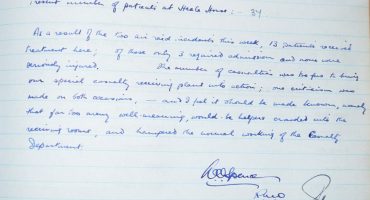 Present number of patients at Heale House: 34
As a result of the two air raid incidents this week, 13 patients received
treatment here; of these only 3 required admission and none were
seriously injured. The number of casualties was too few to bring
our special casualty receiving plant into action; one criticism was
made on both occasions, — and I feel it should be made known, namely
that far too many well-meaning, would-be helpers crowded into the
receiving rooms, and hampered the normal working of the Casualty
Department.